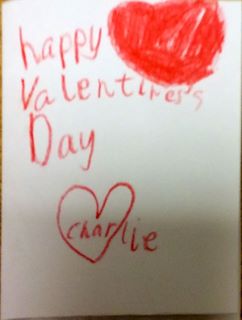 happy
Valentines
Day
charlie